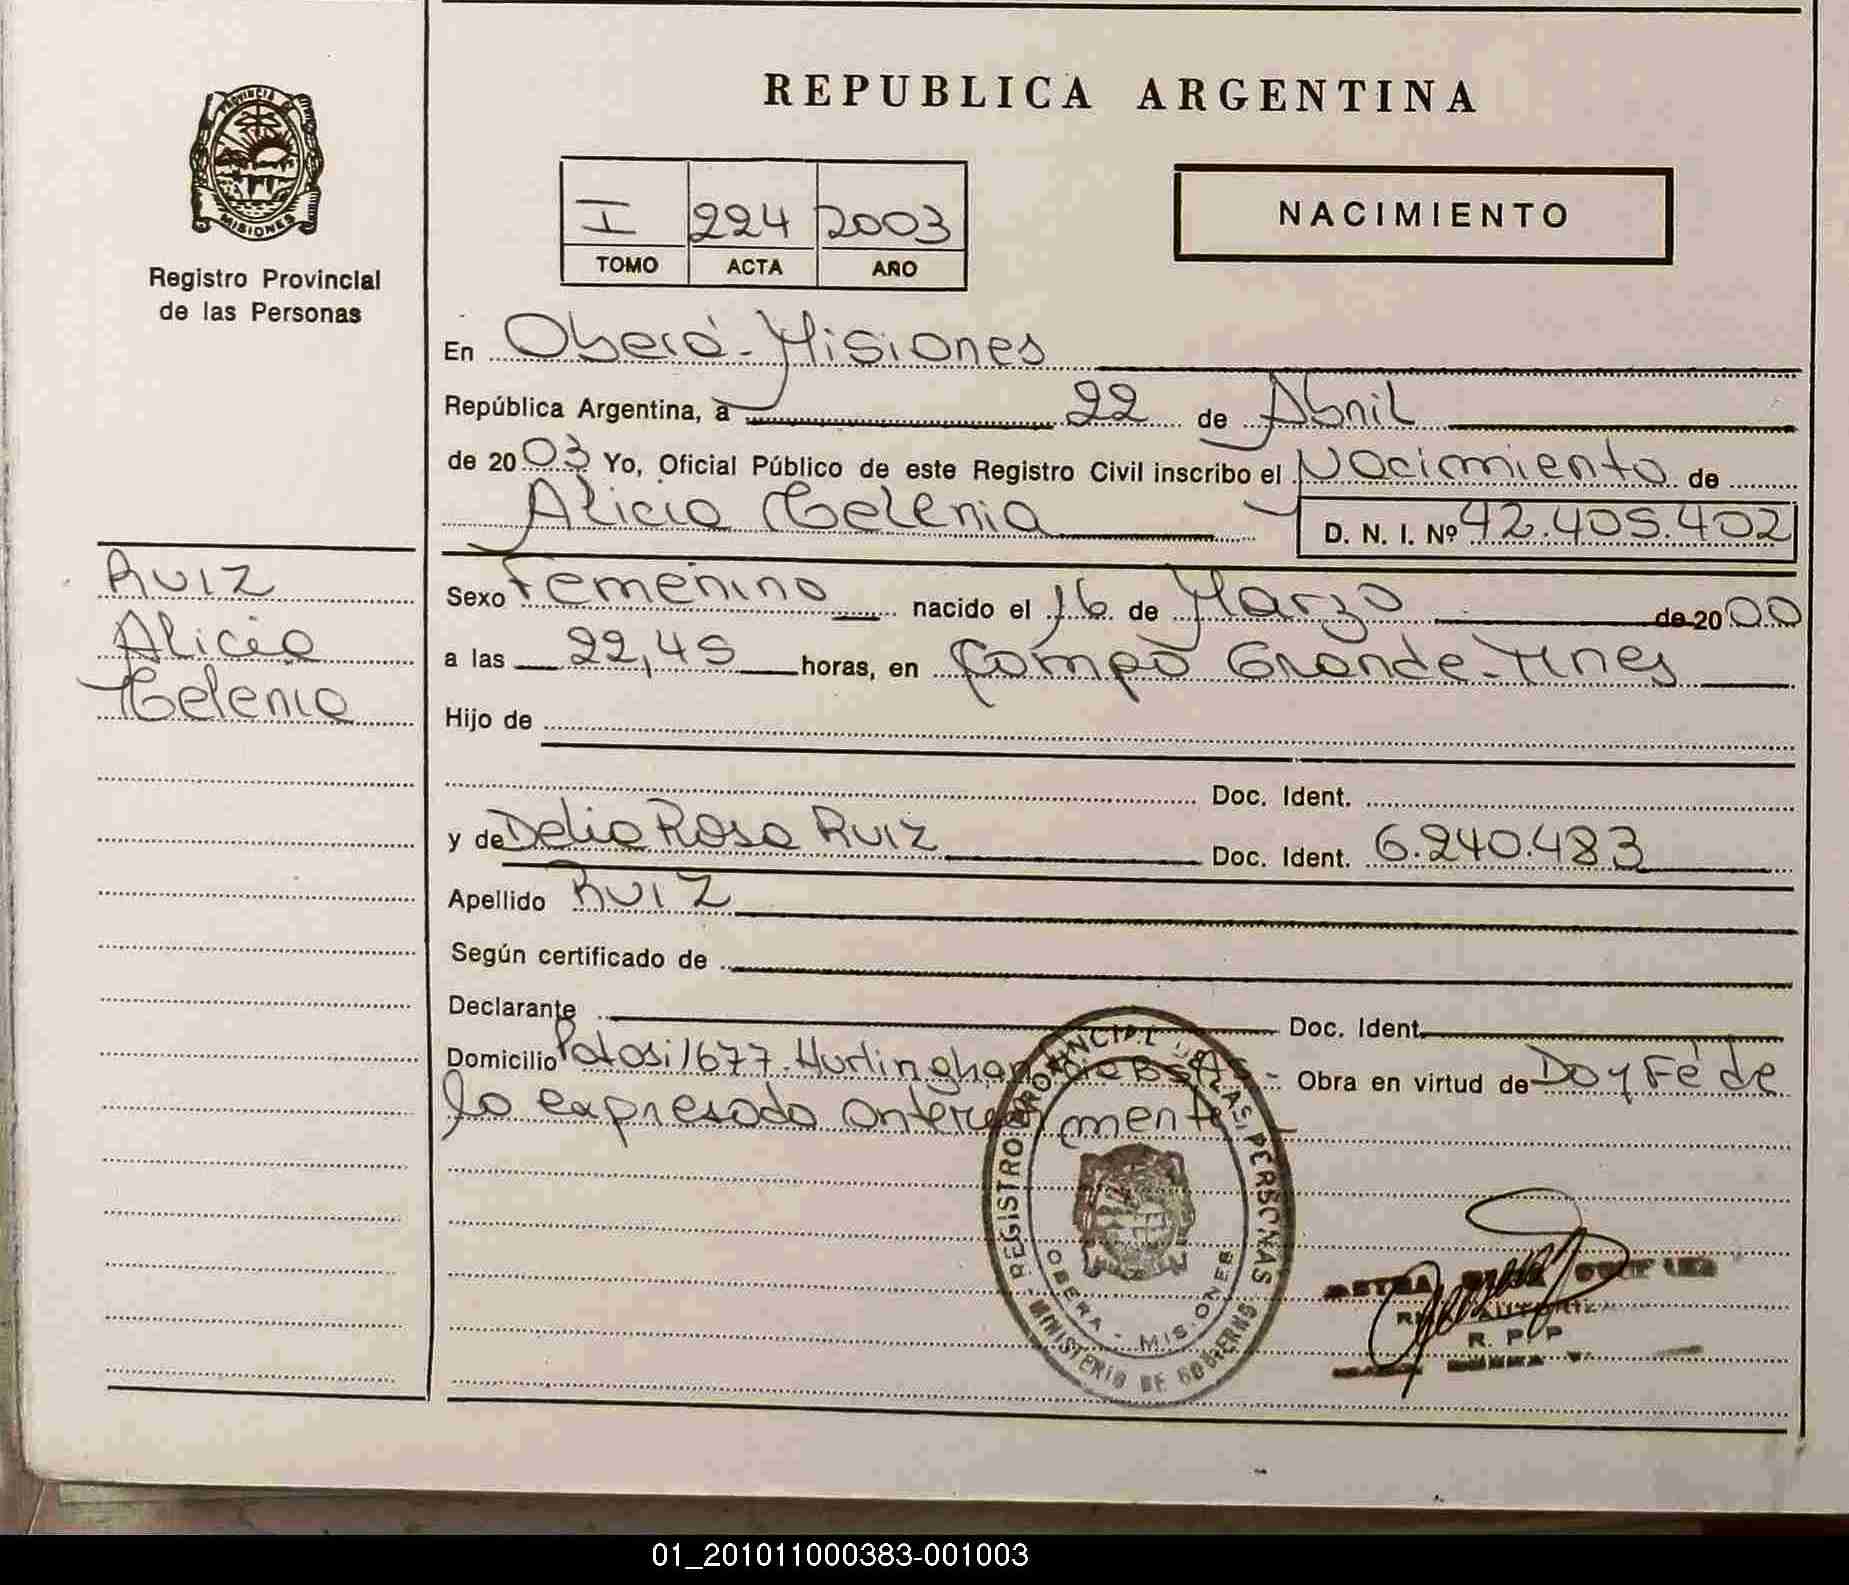 REPUBLICA ARGENTINA
PROVINCIA DE
MISIONES
Registro Provincial
de las Personas
I 224 2003
TOMO ACTA AÑO
NACIMIENTO
En Oberá - Misiones
República Argentina, a 22 de Abril
de 2003 Yo, Oficial Público de este Registro Civil inscribo el Nacimiento de
Alicia Celenia D. N. I. Nº 42.405.402
Ruiz
Alicia
Celenia
Sexo Femenino nacido el 16 de Marzo de 2000
a las 22,45 horas, en Campo Grande - Mnes
Hijo de
Doc. Ident.
y de Delia Rosa Ruiz Doc. Ident. 6.240.483
Apellido Ruiz
Según certificado de
Declarante Doc. Ident.
Domicilio Potosi 1677. Hurlingham Bs As - Obra en virtud de Doy Fé de
lo expresado anteriormente
REGISTRO PROVINCIAL DE LAS PERSONAS
OBERA - MISIONES
MINISTERIO DE GOBIERNO
R. P. P.
01_201011000383-001003